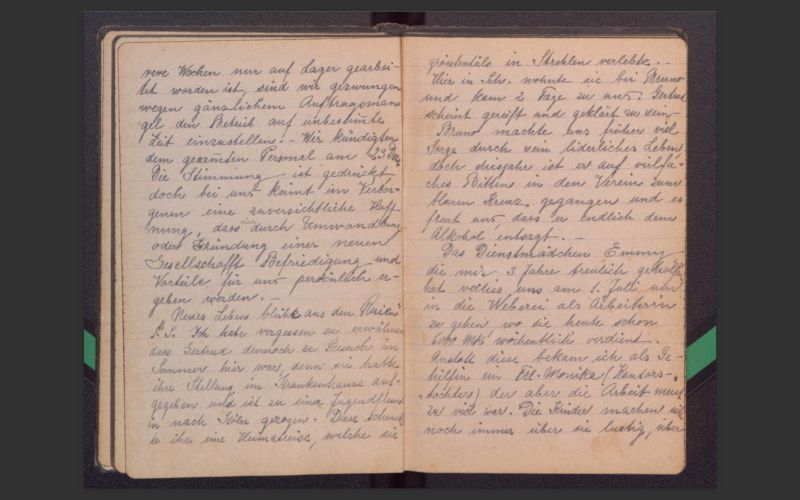 rere Wochen nur auf Lager gearbei-
tet worden ist, sind wir gezwungen
wegen gänzlichem Auftragsman-
gel den Betrieb auf unbestimmte
Zeit einzustellen. - Wir kündigten
dem gesamten Personal am 23.
Die Stimmung ist gedrückt
doch bei uns keimt im Verbor-
genen eine zuversichtliche Hoff-
nung, dass durch Umwandlung
oder Gründung einer neuen
Gesellschafft Befriedigung und
Vorteile für uns persönlich er-
geben werden. -
Neues Lebens blüht aus den Ruinen
P.S. Ich habe vergessen zu erwähnen
dass Gertrud dennoch zu Besuche im
Sommer hier war, denn sie hatte
ihre Stellung im Krankenhause auf-
gegeben und ist zu einer
in nach Köln gezogen. Diese schenk-
te ihr eine Heimatreise, welche sie
grösstentäls in Strehlen verlebte. -
Hier in Schr. wohnte sie bei Bruno
und kam 2 Tage zu uns. Gertrud
scheint gereift und geklärt zu sein -
Bruno machte uns früher viel
Sorge durch sein liderliches Leben,
doch diesjahr ist er auf vielfä-
ches Bittens in den Verein zum
blauen Kreuz gegangen und es
freut uns, dass er endlich dem
Alkohol entsagt. -
Das Dienstmädchen Emmy
die mir 3 Jahre treulich geholfen
hat verliess uns am 1. Juli um
in die Weberei als Arbeiterin
zu gehen, wo sie heute schon
6000 Mk wöchentlich verdient. -
Anstatt diese bekam ich als Ge-
hilfin ein Frl. Monika (Kantors-
tochter) der aber die Arbeit
zu viel war. Die Kinder machen sich
noch immer über sie lustig, über